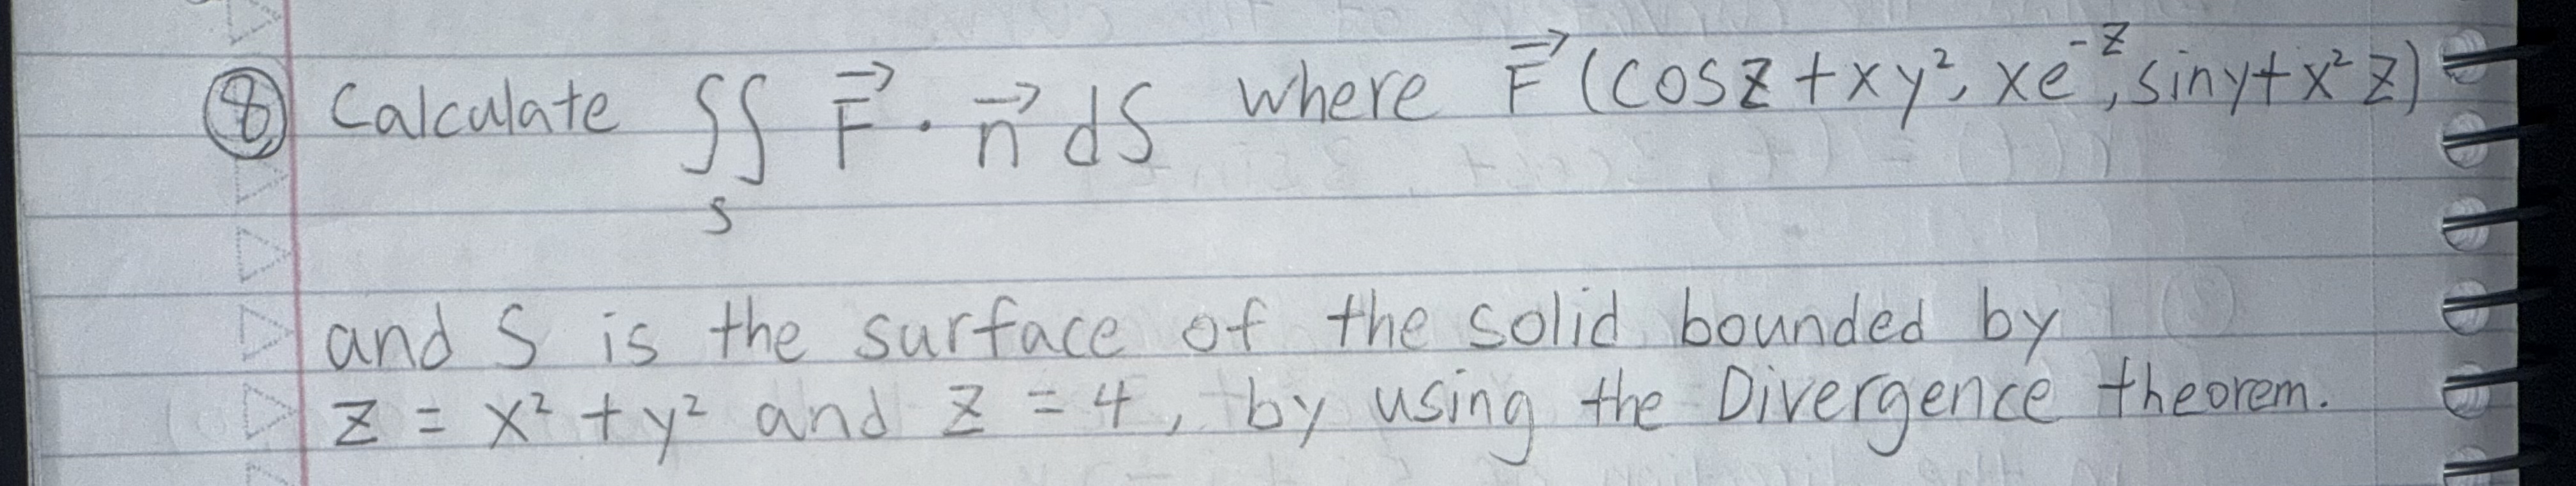 ⑧ Calculate ∬_S F⃗ · n⃗ dS where F⃗ (cosz + xy², xe^{-z}, siny + x²z)
and S is the surface of the solid bounded by
z = x² + y² and z = 4, by using the Divergence theorem.